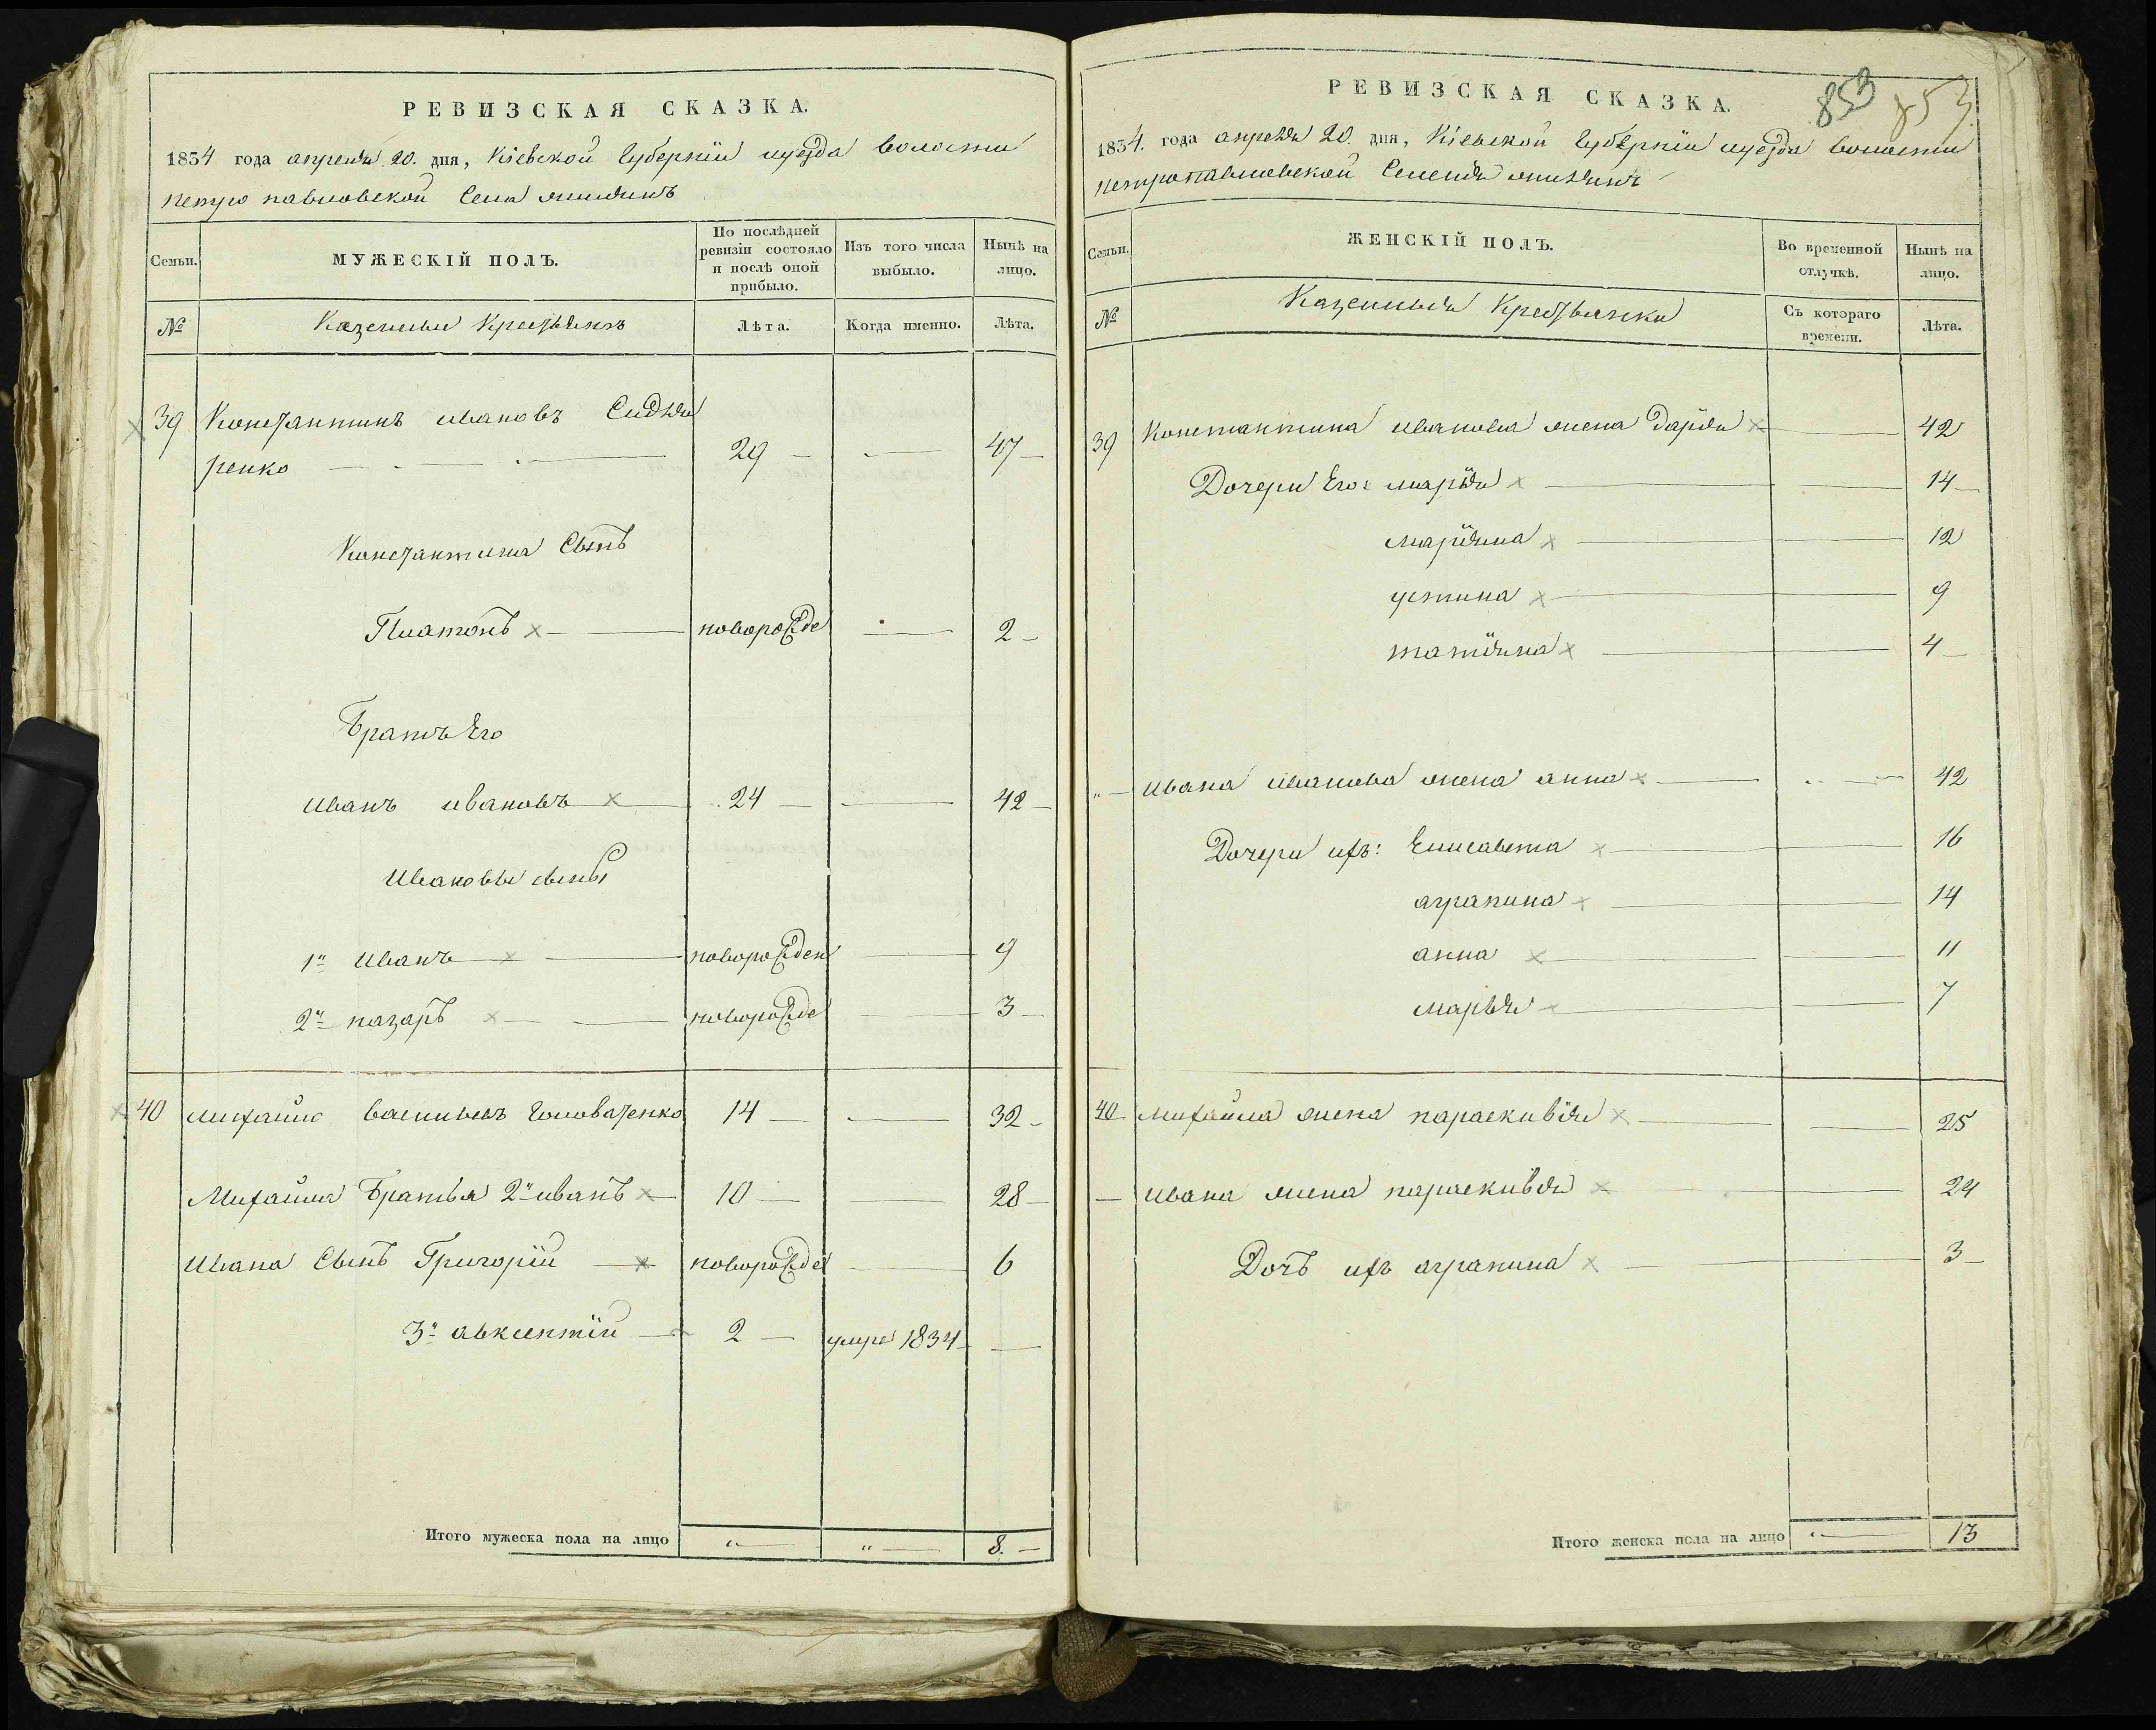 РЕВИЗСКАЯ СКАЗКА.
1834 года апреля 20. дня, Кіевской Губерніи уезда волости
петро павловской Села
Семьи.
МУЖЕСКІЙ ПОЛЪ.
По послѣдней ревизіи состояло и послѣ оной прибыло.
Изъ того числа выбыло.
Нынѣ на лицо.
№
Казенные Крестьянъ
Лѣта.
Когда именно.
Лѣта.
39 Константинъ ивановъ Сидя
ренко 29 47
Константина Сынъ
Платонъ новорожде 2
Братъ Его
иванъ ивановъ 24 42
Ивановы сыны
1й иванъ новорожден 9
2й назаръ новорожде 3
40 михайло васильевъ Головатенко 14 32
Михайла Братья 2й иванъ 10 28
Ивана Сынъ Григорій новорожде 6
3й авксентій 2 умре 1834
Итого мужеска пола на лицо 8.
РЕВИЗСКАЯ СКАЗКА.
853 853
1834. года апреля 20. дня, Кіевской Губерніи уезда волости
петропавловской Селенія
Семьи.
ЖЕНСКІЙ ПОЛЪ.
Во временной отлучкѣ.
Нынѣ на лицо.
№
Казенныя Крестьянки
Съ котораго времени.
Лѣта.
39 Константина иванова жена Дарія 42
Дочери Его: марія 14
маріяна 12
устина 9
татіяна 4
ивана иванова жена анна 42
Дочери ихъ: Елисавета 16
аграпина 14
анна 11
марья 7
40 михайла жена параскивія 25
ивана жена параскивія 24
Дочъ ихъ аграпина 3
Итого женска пола на лицо 13